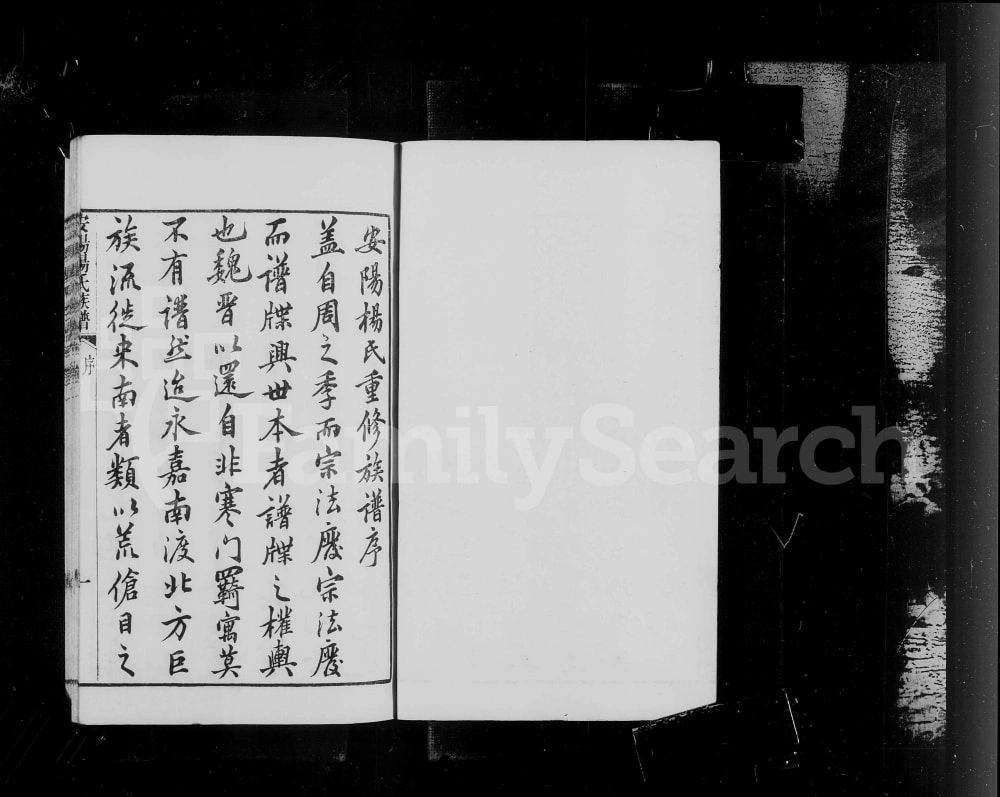 安陽楊氏重修族譜序
蓋自周之季而宗法廢宗法廢
而譜牒興世本者譜牒之權輿
也魏晉以還自非寒門羇寓莫
不有譜然迨永嘉南渡北方巨
族流徙來南者類以荒傖目之
安陽楊氏族譜
序
一
FamilySearch